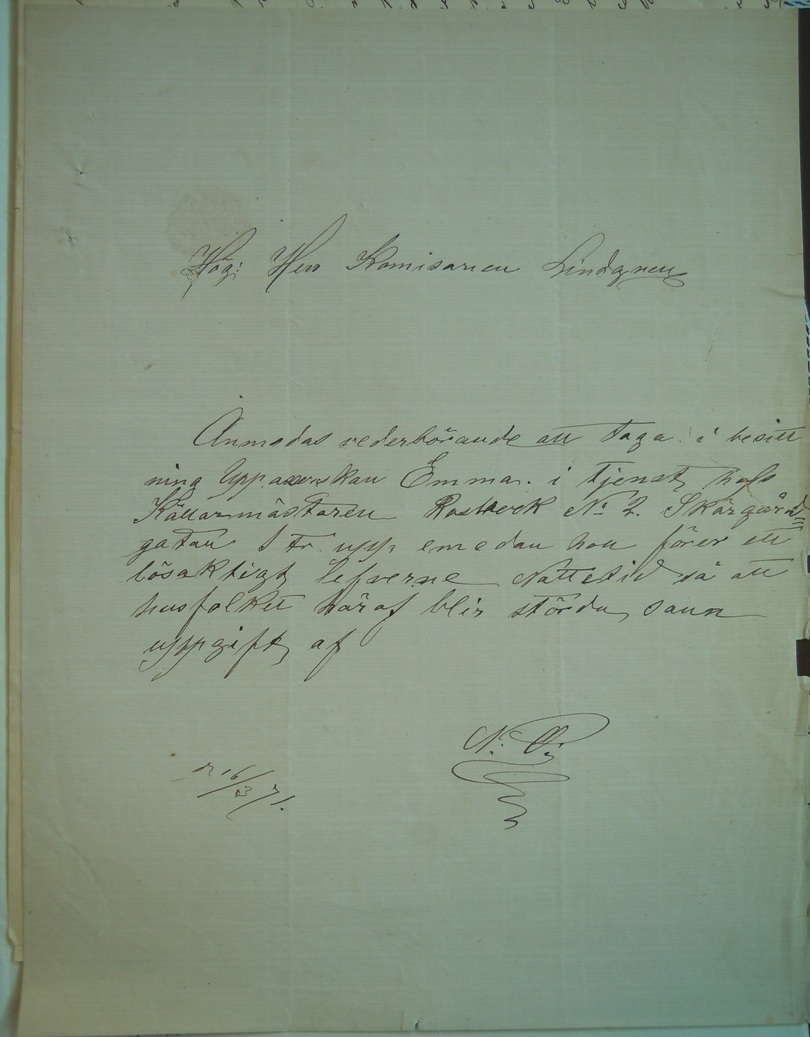 Hög: Herr Komisarien Lindgren
Anmodas vederbörande att taga i besitt
ning Uppasserskan Emma. i tjenst hos
Källarmästaren Rosbeck No 2. Skärgårds
gatan 1 tr. upp emedan hon förer ett
lösaktigt lefverne Nattetid så att
husfolket häraf blir störda, sann
uppgift af
N. O;
16/3 71.